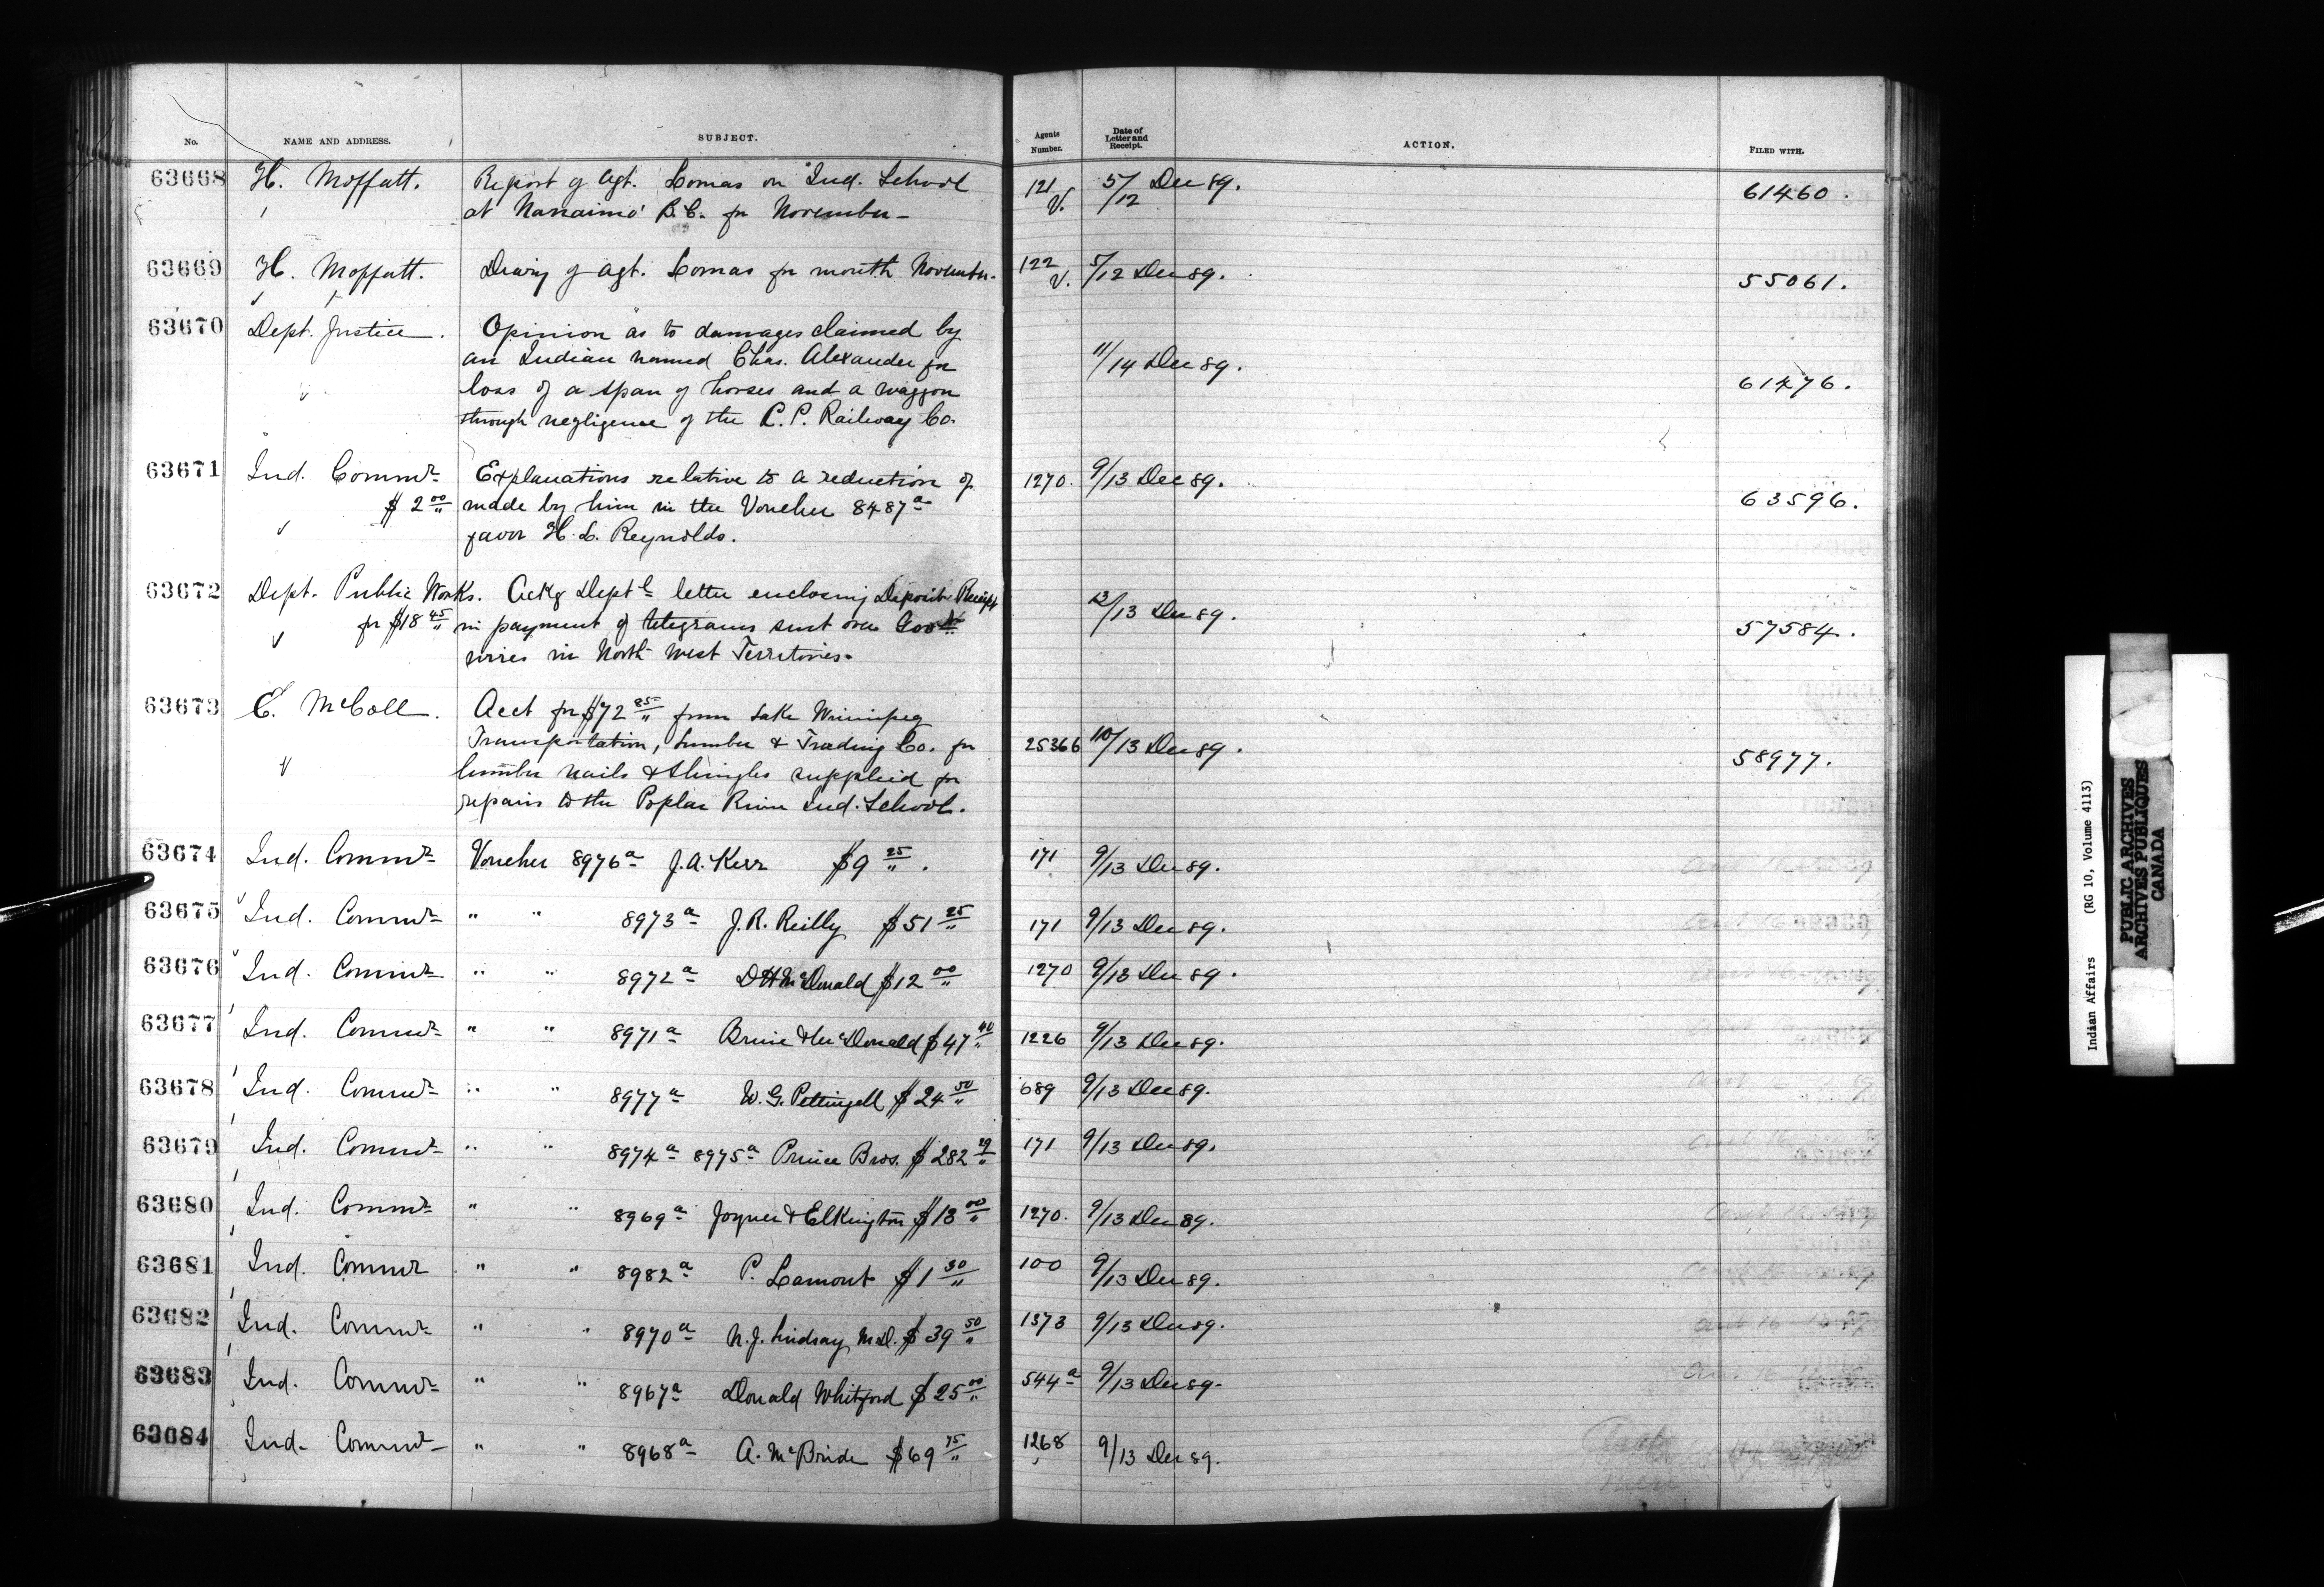 No. NAME AND ADDRESS. SUBJECT. Agents Number. Date of Letter and Receipt. ACTION. FILED WITH.
63668 H. Moffatt. Report of Agt. Lomas on Ind. School 121 V. 5/12 Dec 89. 61460.
at Nanaimo B.C. for November -
63669 H. Moffatt. Diary of Agt. Lomas for month November. 122 V. 5/12 Dec 89. 55061.
63670 Dept. Justice. Opinion as to damages claimed by
an Indian named Chas. Alexander for 11/14 Dec 89.
loss of a span of horses and a waggon 61476.
through negligence of the C.P. Railway Co.
63671 Ind. Commr Explanations relative to a reduction of 1270. 9/13 Dec 89.
$2 00 made by him in the Voucher 8487a 63596.
favor H. L. Reynolds.
63672 Dept. Public Works. Ackg Deptl letter enclosing Deposit Receipt
for $18 45 in payment of telegrams sent over Govt 13 Dec 89. 57584.
wires in North West Territories.
63673 E. McColl. Acct for $72 85 from Lake Winnipeg
Transportation, Lumber & Trading Co. for 25366 10/13 Dec 89. 58977.
lumber nails & shingles supplied for
repairs to the Poplar River Ind. School.
63674 Ind. Commr Voucher 8976a J.A. Kerr $9 25. 171 9/13 Dec 89.
63675 Ind. Commr " " 8973a J.R. Reilly $51 25 171 9/13 Dec 89.
63676 Ind. Commr " " 8972a D H McDonald $12 00 1270 9/13 Dec 89.
63677 Ind. Commr " " 8971a Bruce & McDonald $47 40 1226 9/13 Dec 89.
63678 Ind. Commr " " 8977a W. G. Pettingell $24 50 689 9/13 Dec 89.
63679 Ind. Commr " " 8974a 8975a Prince Bros. $282 29 171 9/13 Dec 89.
63680 Ind. Commr " " 8969a Joyner & Elkington $13 00 1270. 9/13 Dec 89.
63681 Ind. Commr " " 8982a P. Lamont $1 30 100 9/13 Dec 89.
63682 Ind. Commr " " 8970a N. J. Lindsay M.D. $39 50 1373 9/13 Dec 89.
63683 Ind. Commr " " 8967a Donald Whitford $25 00 544a 9/13 Dec 89.
63684 Ind. Commr " " 8968a A. McBride $69 75 1268 9/13 Dec 89.
Indian Affairs (RG 10, Volume 4113)
PUBLIC ARCHIVES
ARCHIVES PUBLIQUES
CANADA